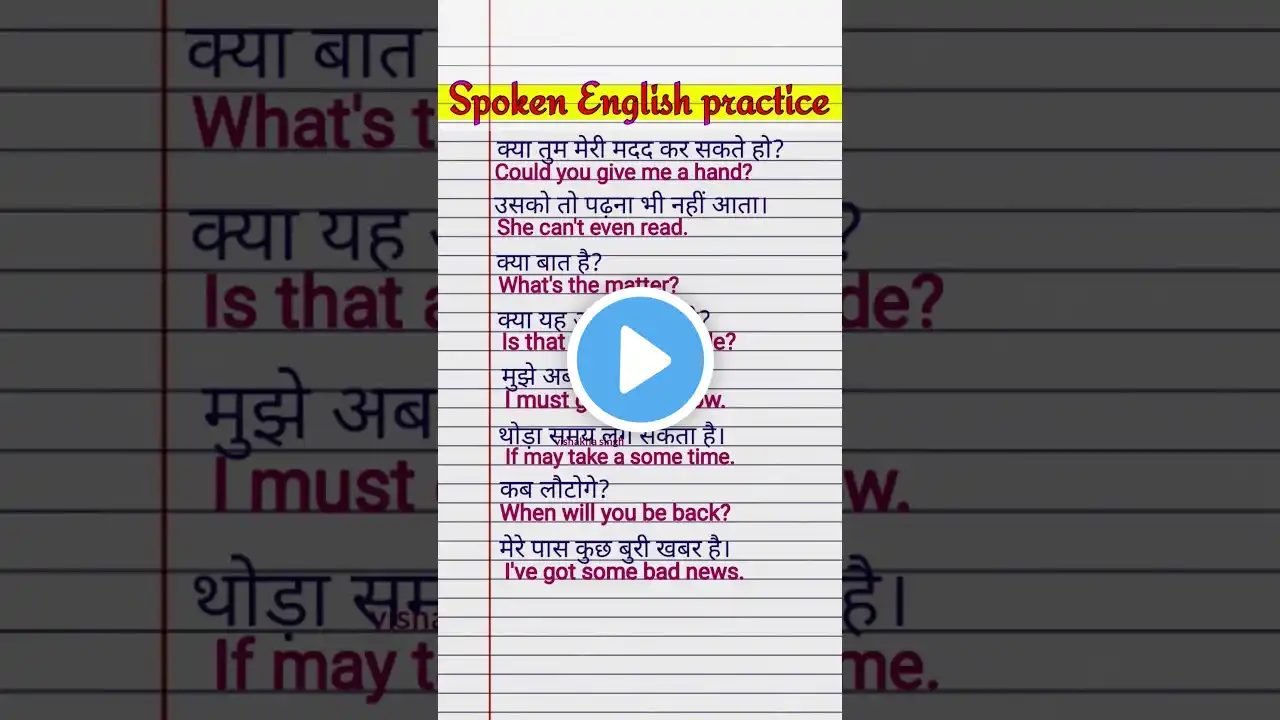 Spoken English practice
क्या तुम मेरी मदद कर सकते हो?
Could you give me a hand?
उसको तो पढ़ना भी नहीं आता।
She can't even read.
क्या बात है?
What's the matter?
क्या यह
Is that
मुझे अब
I must
थोड़ा समय लग सकता है।
vishakha singh
If may take a some time.
कब लौटोगे?
When will you be back?
मेरे पास कुछ बुरी खबर है।
I've got some bad news.